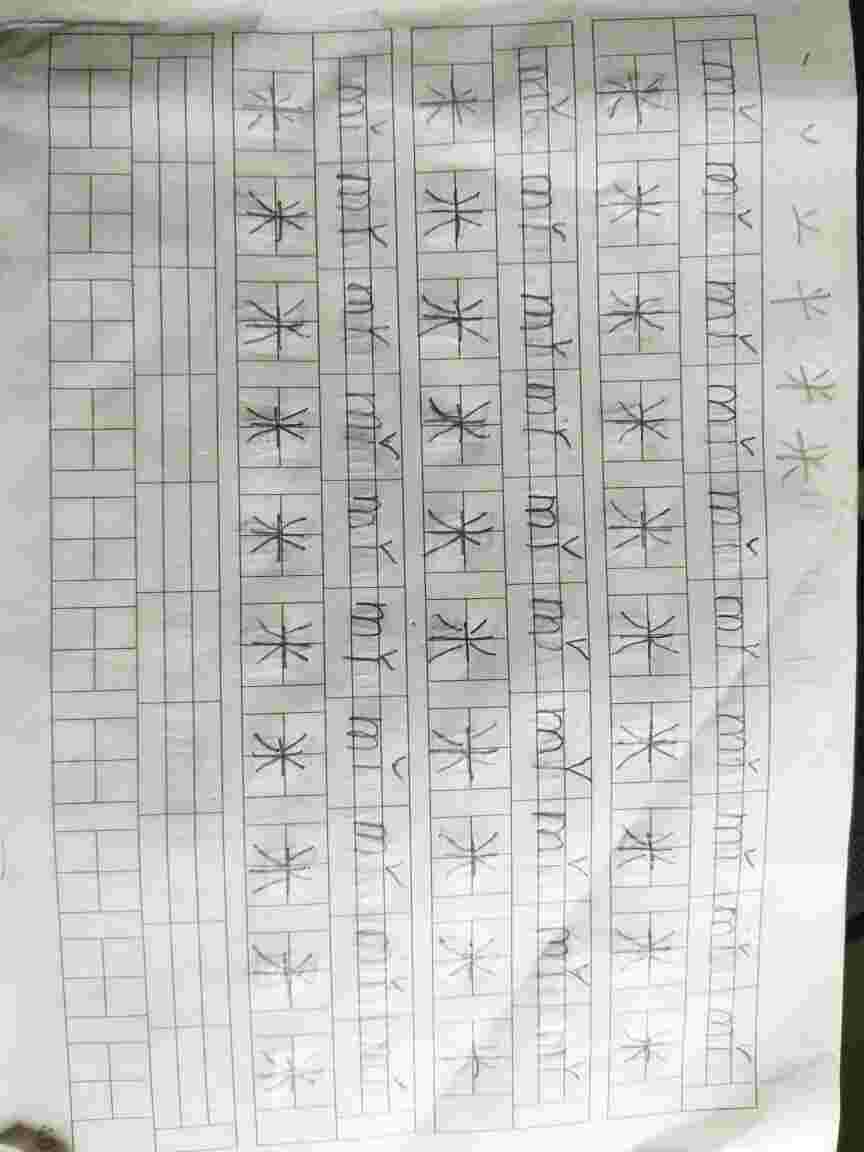 丶 丷 米
mǐ mǐ mǐ mǐ mǐ mǐ mǐ mǐ mǐ mǐ
米 米 米 米 米 米 米 米 米 米
mǐ mǐ mǐ mǐ mǐ mǐ mǐ mǐ mǐ mǐ
米 米 米 米 米 米 米 米 米 米
mǐ mǐ mǐ mǐ mǐ mǐ mǐ mǐ mǐ mǐ
米 米 米 米 米 米 米 米 米 米